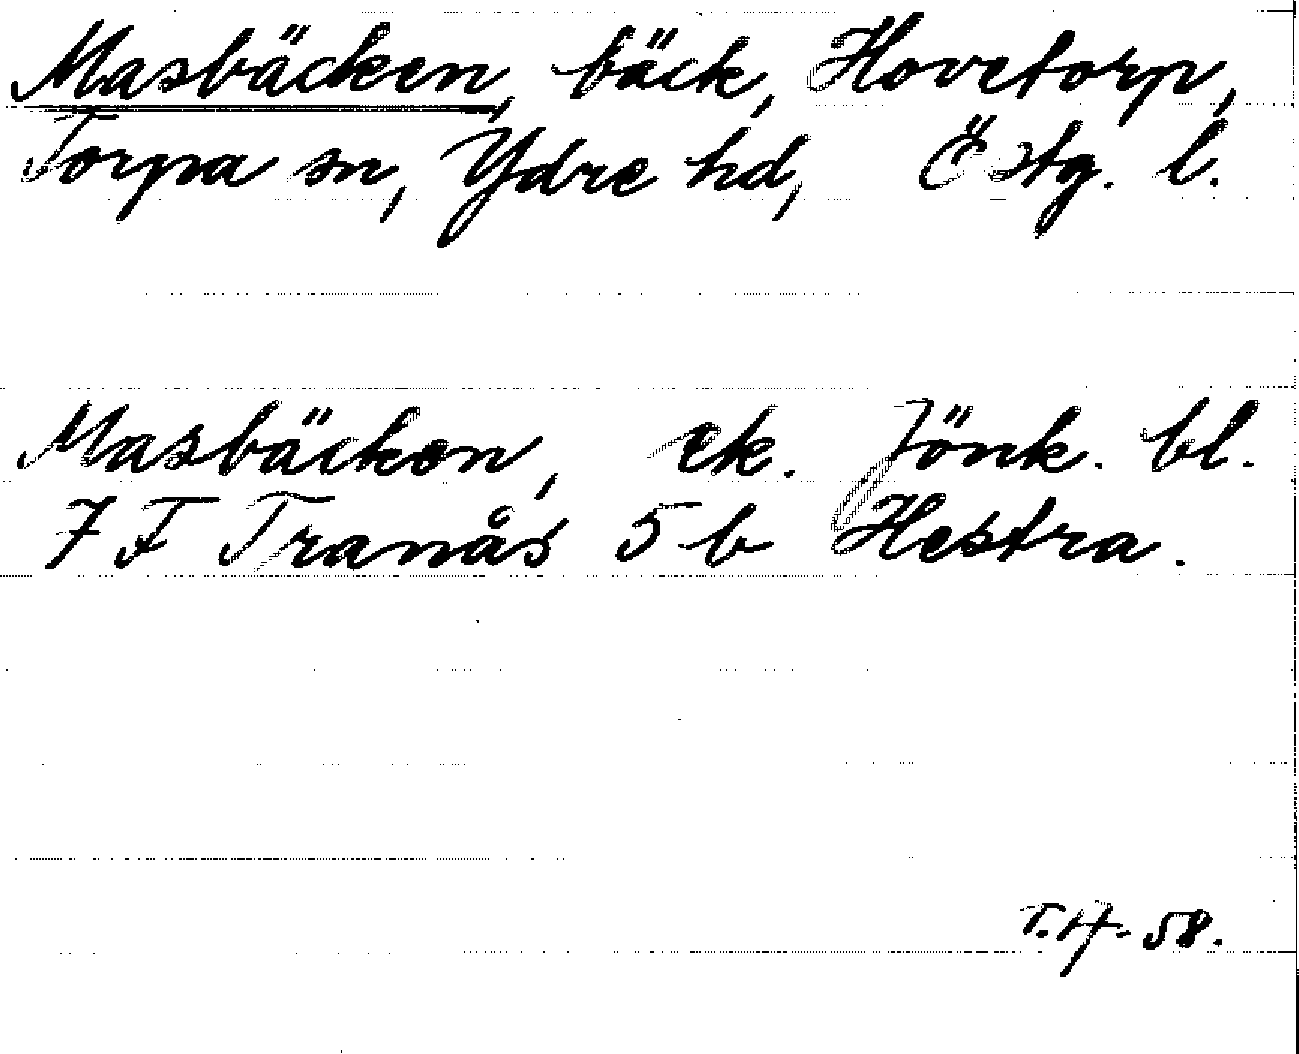 Masbäcken, bäck, Hovetorp,
Torpa sn, Ydre hd, Östg. l.
Masbäcken, ek. Jönk. bl.
7 F Tranås 5 b Hestra.
T.H. 58.